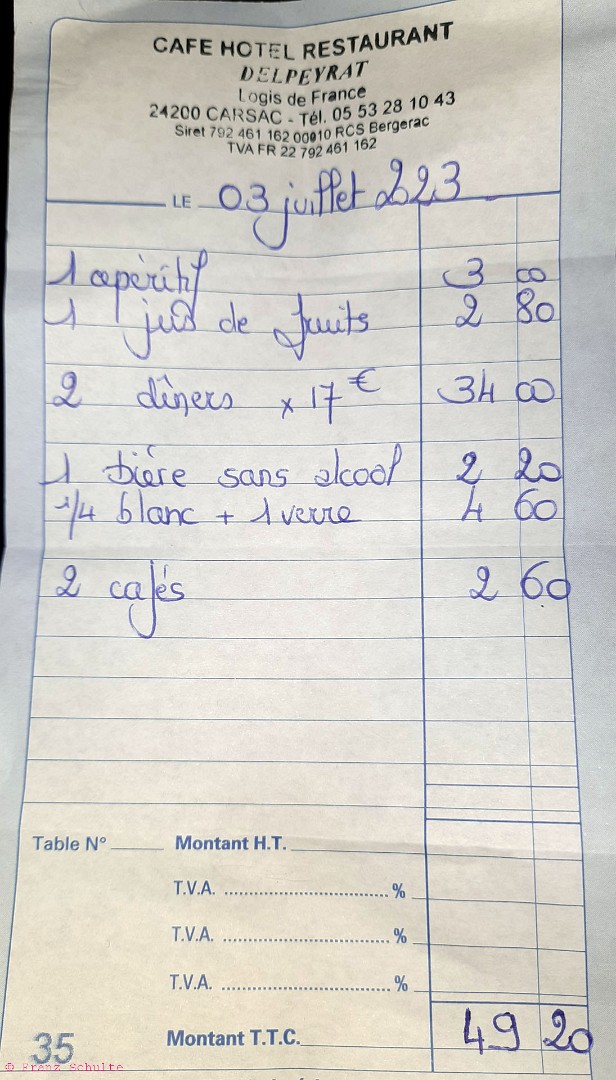 CAFE HOTEL RESTAURANT
DELPEYRAT
Logis de France
24200 CARSAC - Tél. 05 53 28 10 43
Siret 792 461 162 00010 RCS Bergerac
TVA FR 22 792 461 162
LE 03 juillet 2023
1 apéritif 3 00
1 jus de fruits 2 80
2 dîners x 17 € 34 00
1 bière sans alcool 2 20
1/4 blanc + 1 verre 4 60
2 cafés 2 60
Table N° Montant H.T.
T.V.A. %
T.V.A. %
T.V.A. %
35 Montant T.T.C. 49 20
© Franz Schulte